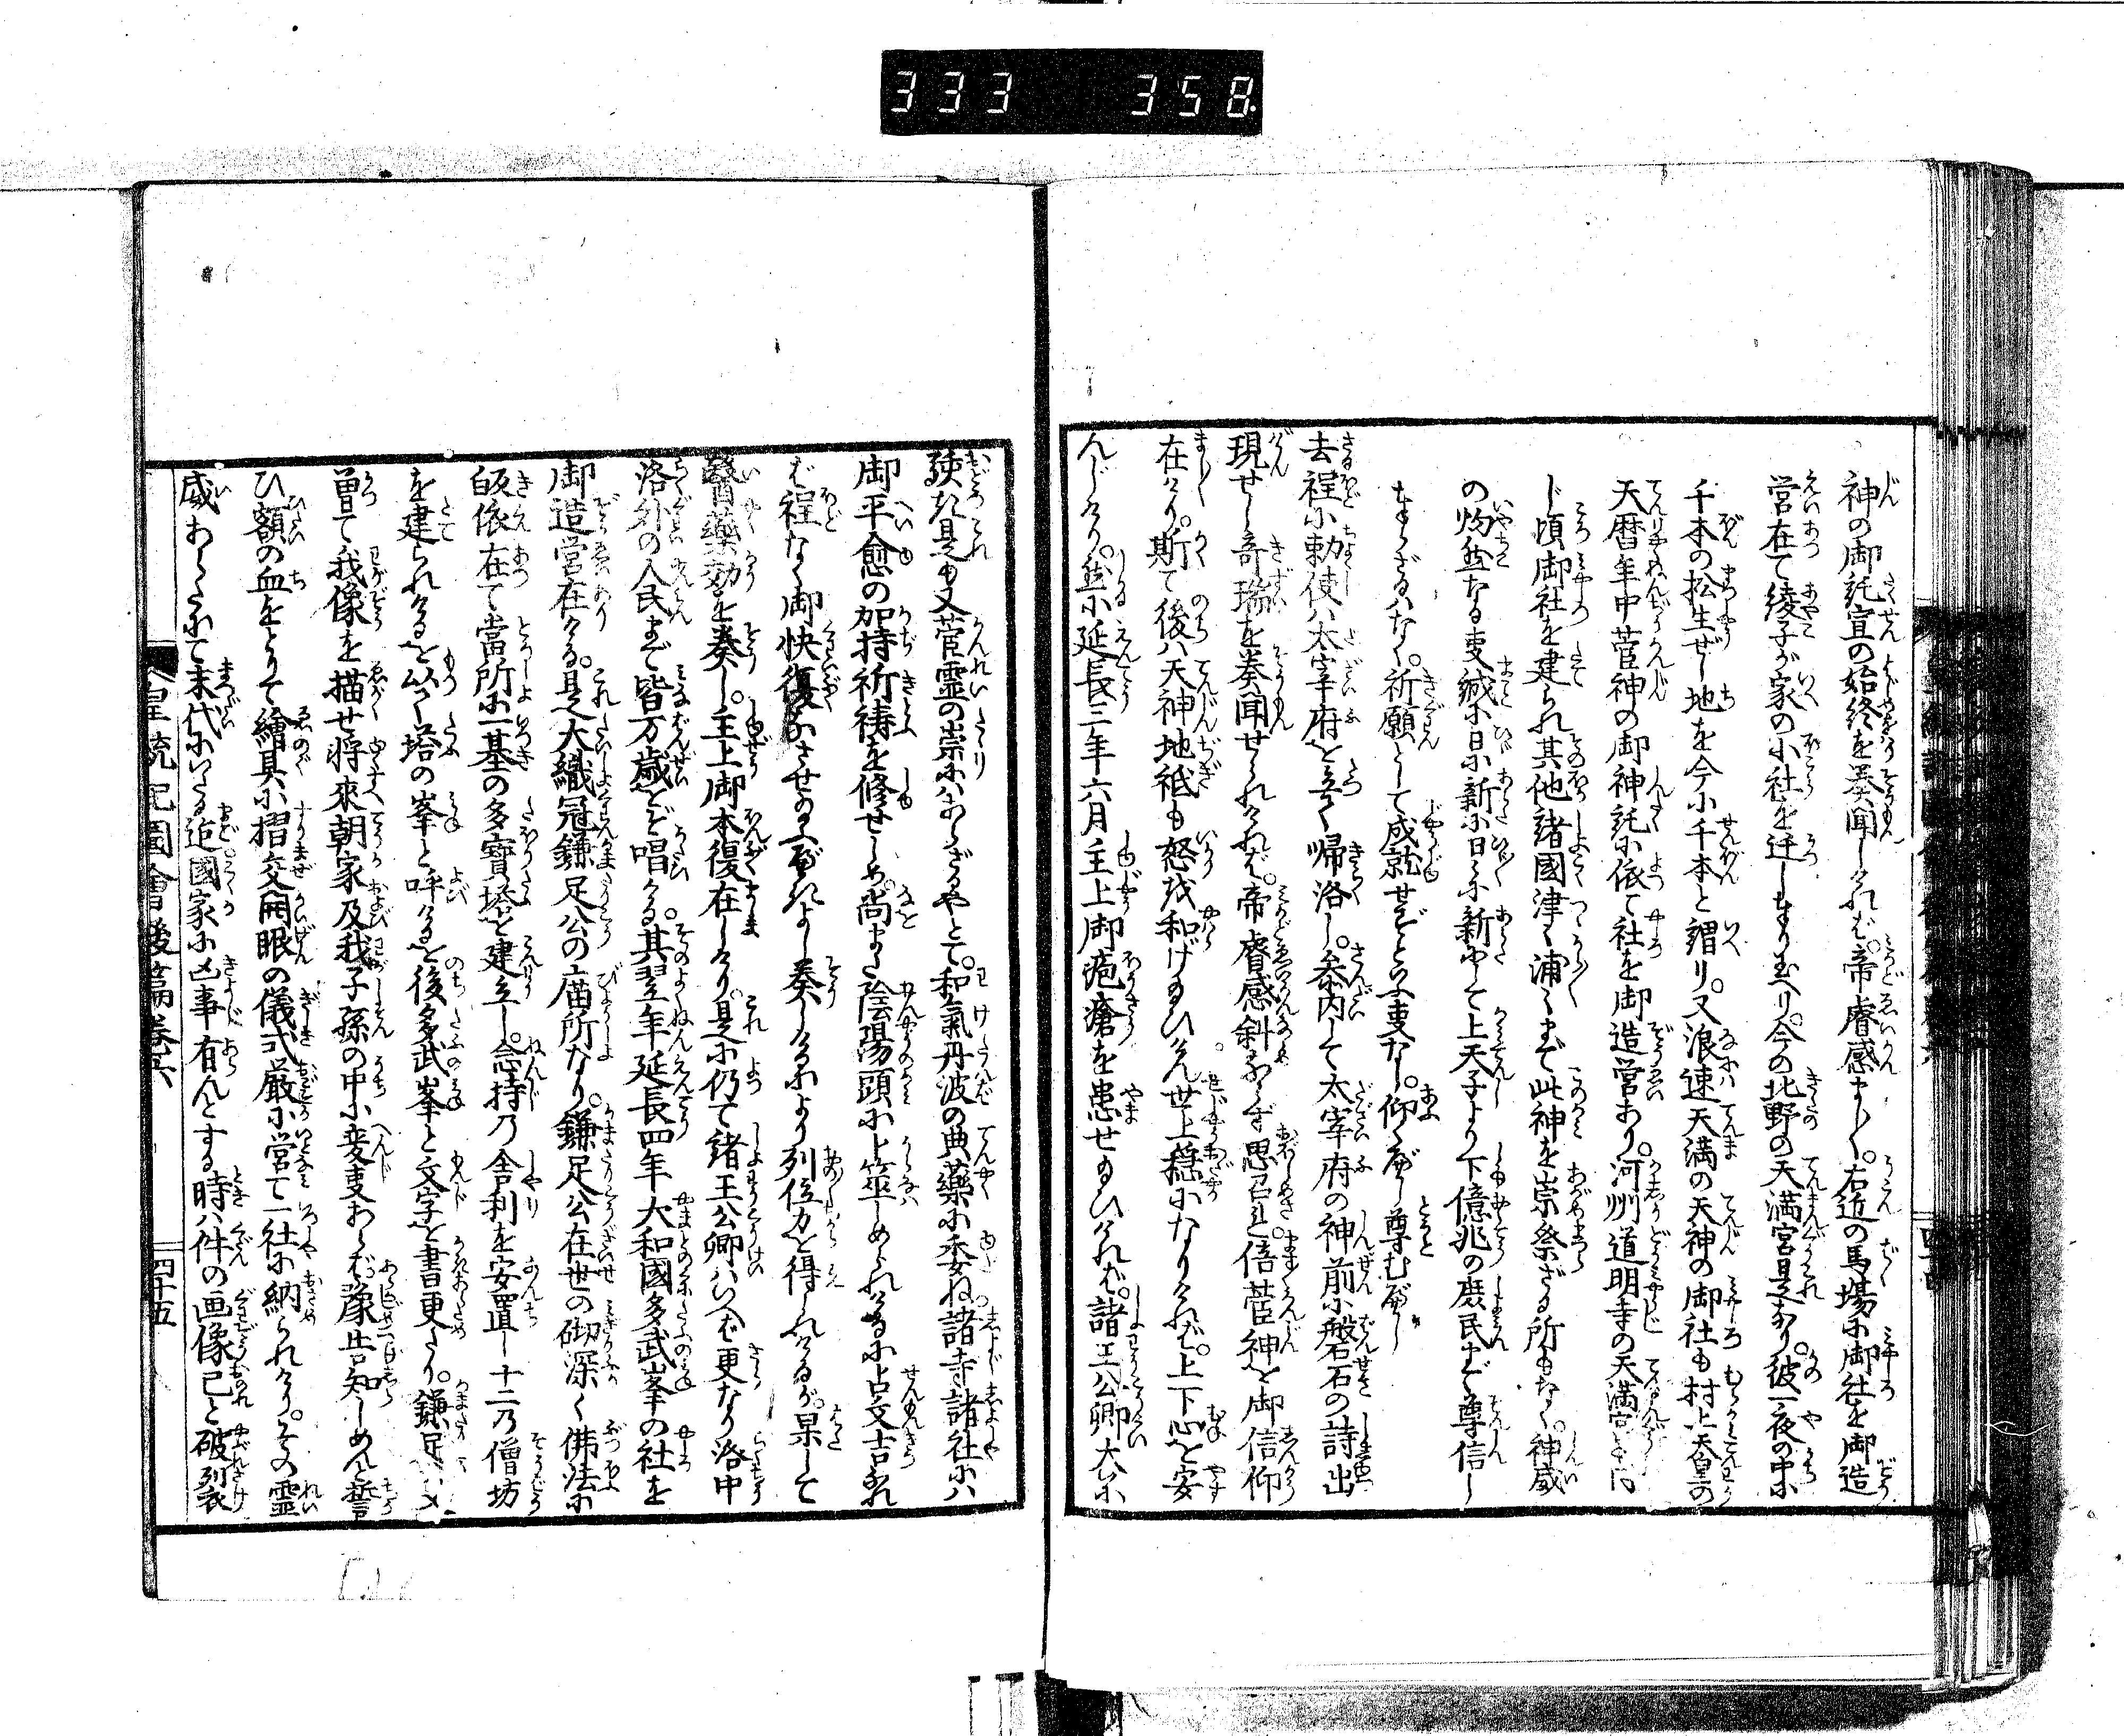 333 358
神の御託宣の始終を奏聞しければ。帝睿感まし〳〵。右近の馬場に御社を御造
営在て綾子が家の小社を迁しまゐらせ玉へり。今の北野の天満宮是なり。彼一夜の中に
千本の松生ぜし地を今に千本と謂り。又浪速天満の天神の御社も村上天皇の
天暦年中菅神の御神託に依て社を御造営あり。河州道明寺の天満宮も同
じ頃御社を建られ其他諸國津々浦々まで此神を崇祭ざる所もなく。神威
の灼然なる事誠に日に新に日々に新にして上天子より下億兆の庶民まで尊信し
奉らざるはなく。祈願として成就せずといふ事なし。仰ぐべし尊むべし
去程に勅使は太宰府を立て帰洛し。参内して太宰府の神前に磐石の詩出
現せし奇瑞を奏聞せられければ。帝睿感斜ならず思召れ。倍菅神を御信仰
在けり。斯て後は天神地祇も怒を和げ給ひけん世上穏になりければ。上下心を安
んじけり。然に延長三年六月主上御疱瘡を患せ給ひければ。諸王公卿大に
驚き是も又菅霊の祟にはあらざるやとて。和氣丹波の典藥に委ね諸寺諸社には
御平愈の加持祈祷を修せしめ。尚また陰陽頭に卜筮しめられけるに占文吉なれ
ば程なく御快復なさせ給ふべきよし奏しけるにより列位力を得られけるが。果して
醫藥効を奏し。主上御本復在しけり。是に仍て諸王公卿はいへば更なり洛中
洛外の人民まで皆万歳をぞ唱ける。其翌年延長四年大和國多武峯の社を
御造営在ける。是大織冠鎌足公の庿所なり。鎌足公在世の砌深く佛法に
皈依在て當所に一基の多寶塔を建立し。念持乃舎利を安置し十二乃僧坊
を建られけるを以て塔の峯と呼けるを後多武峯と文字を書更たり。鎌足
曽て我像を描せ将來朝家及我子孫の中に変事あらば豫告知しめんと誓
ひ額の血をとりて繪具に摺交開眼の儀式厳に営て一社に納られけり。その霊
威あらたにて末代にいたる迄國家に凶事有んとする時は件の画像己と破裂
皇統記圖會後篇巻六 四十五